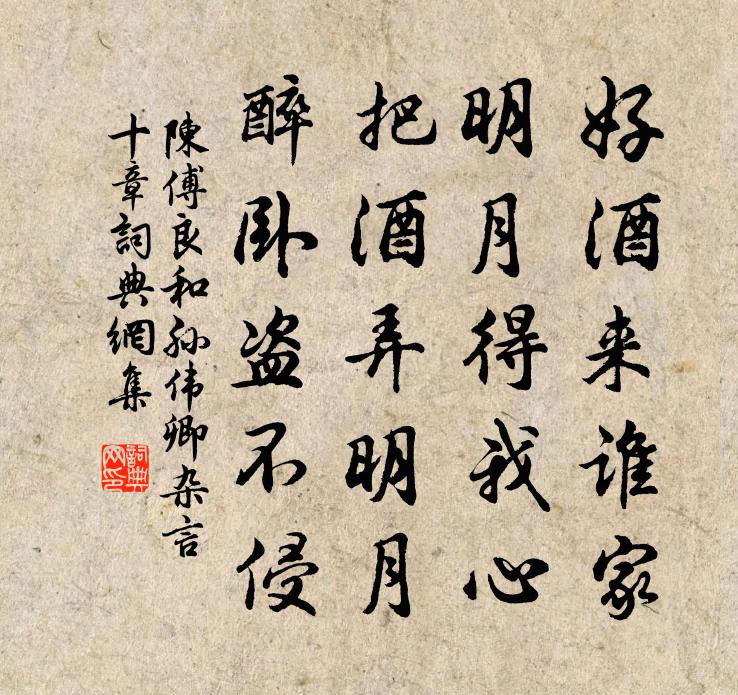 好酒来谁家
明月得我心
把酒弄明月
醉卧盗不侵
陳傅良和孙伟卿杂言
十章詞典網集
詞典
网印